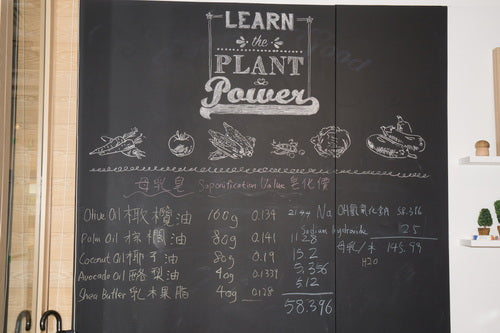 LEARN
the
PLANT
Power
母乳皂 Saponification Value 皂化價
Olive Oil 橄欖油 160g 0.134 21.44 NaOH氫氧化鈉 58.396
Sodium hydroxide 2.5
Palm Oil 棕櫚油 80g 0.141 11.28
Coconut Oil 椰子油 80g 0.19 15.2 母乳/水 145.99
H2O
Avocado Oil 酪梨油 40g 0.1339 5.356
Shea Butter 乳木果脂 40g 0.128 5.12
58.396